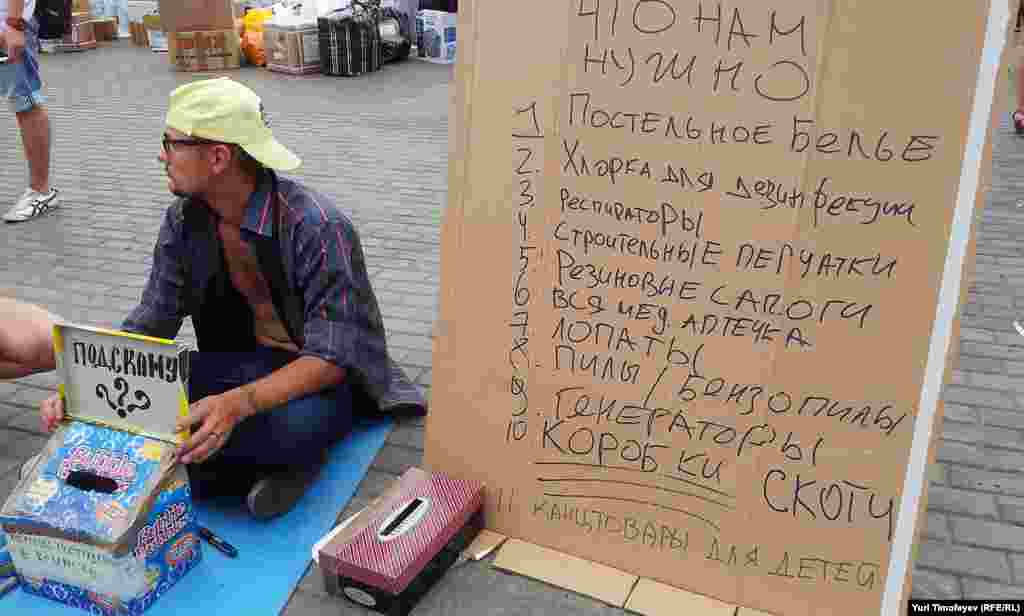 ЧТО НАМ
НУЖНО
1 ПОСТЕЛЬНОЕ БЕЛЬЕ
2. ХЛОРКА ДЛЯ ДЕЗИНФЕКЦИИ
3. РЕСПИРАТОРЫ
4. СТРОИТЕЛЬНЫЕ ПЕРЧАТКИ
5. РЕЗИНОВЫЕ САПОГИ
6. ВСЯ МЕД. АПТЕЧКА
7. ЛОПАТЫ
8. ПИЛЫ / БЕНЗОПИЛЫ
9. ГЕНЕРАТОРЫ
10 КОРОБКИ СКОТЧ
11 КАНЦТОВАРЫ ДЛЯ ДЕТЕЙ
ПОДСКАЖУ
??
Yuri Timofeyev (RFE/RL)